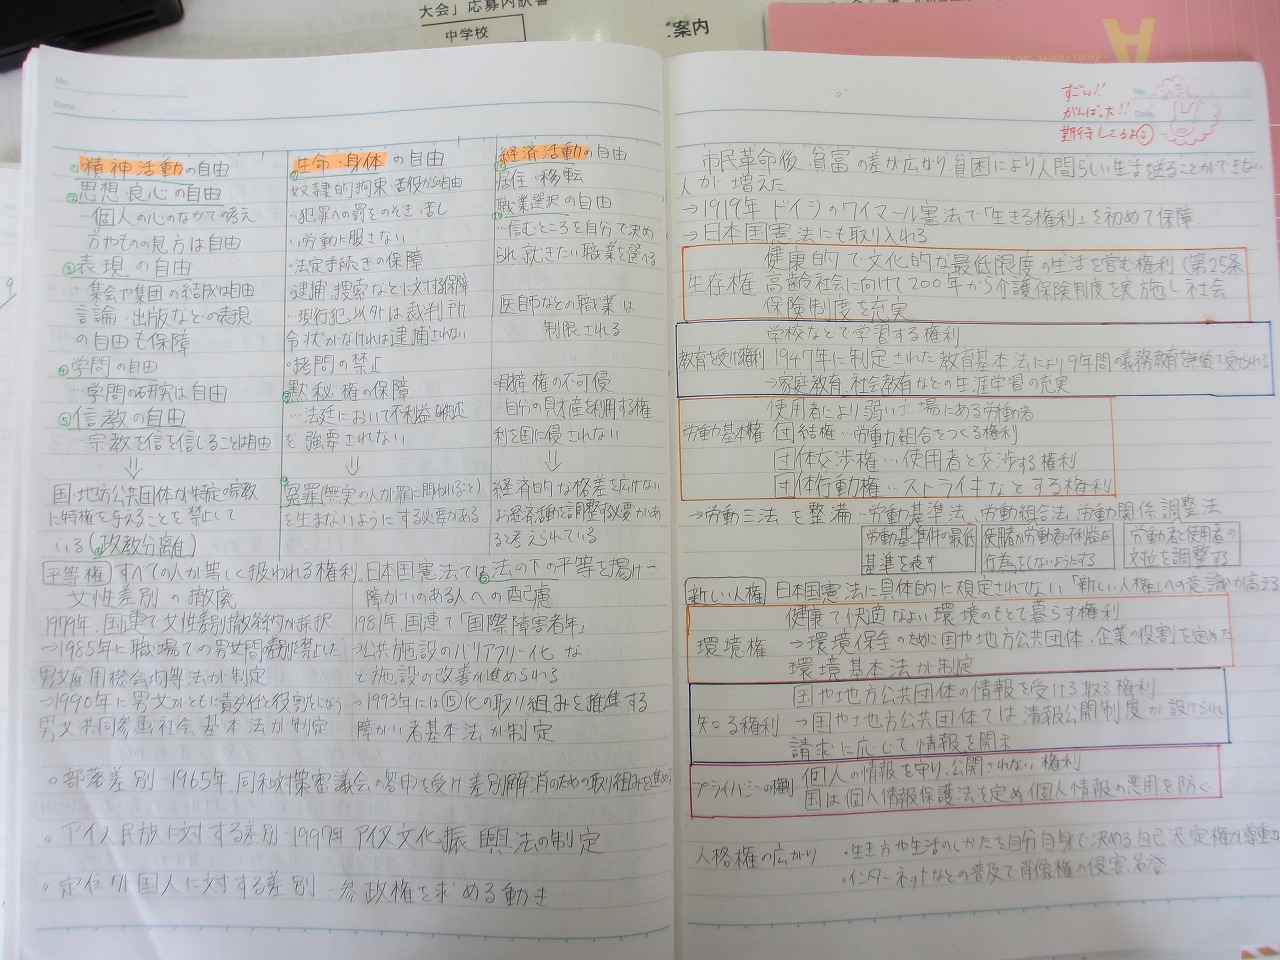 大会」応募内訳書
中学校
案内
A
No.
Date
①精神活動の自由
②思想良心の自由
…個人の心のなかでの考え
方やものの見方は自由
③表現の自由
…集会や集団の結成は自由
言論・出版などの表現
の自由も保障
④学問の自由
…学問の研究は自由
⑤信教の自由
…宗教を信を信じることは自由
⇓
国・地方公共団体が特定の宗教
に特権を与えることを禁止して
いる(政教分離)
生命・身体の自由
奴隷的拘束・苦役からの自由
…犯罪への罰をのぞき、苦し
い労働に服さない
・法定手続きの保障
・逮捕、捜索などに対する保障
…現行犯以外は裁判所の
令状がなければ逮捕されない
・拷問の禁止
黙秘権の保障
…法廷において不利益な供述
を強要されない
⇓
冤罪(無実の人が罪に問われること)
を生まないようにする必要がある
経済活動の自由
居住・移転
職業選択の自由
…住むところを自分で決め
られ就きたい職業を選べる
医師などの職業は
制限される
財産権の不可侵
…自分の財産を利用する権
利を国に侵されない
⇓
経済的な格差を広げない
よう経済活動を調整する必要があ
ると考えられている
平等権 すべての人が等しく扱われる権利。日本国憲法では法の下の平等を掲げ
女性差別の撤廃
1979年、国連で女性差別撤廃条約が採択
→1985年に職場での男女間の差別を禁止した
男女雇用機会均等法が制定
→1990年に男女がともに責任と役割をになう
男女共同参画社会基本法が制定
障がいのある人への配慮
1981年、国連で「国際障害者年」
→公共施設のバリアフリー化な
ど施設の改善が進められる
→1993年には⑮化の取り組みを推進する
障がい者基本法が制定
○部落差別-1965年、同和対策審議会の答申を受け差別解消のための取り組みを進める
○アイヌ民族に対する差別-1997年アイヌ文化振興法の制定
○定住外国人に対する差別-参政権を求める動き
すごい!!
がんばった!!
期待してるよ
No.
Date
市民革命後、貧富の差が広がり、貧困により人間らしい生活を送ることができない
人が増えた
→1919年ドイツのワイマール憲法で「生きる権利」を初めて保障。
→日本国憲法にも取り入れる
生存権
健康的で文化的な最低限度の生活を営む権利(第25条
高齢社会に向けて200年から介護保険制度を実施し社会
保険制度を充実
教育を受ける権利
学校などで学習する権利
1947年に制定された教育基本法により9年間の義務教育を無償で受けられる
→家庭教育、社会教育などの生涯学習の充実
労働基本権
使用者により弱い立場にある労働者
団結権…労働組合をつくる権利
団体交渉権…使用者と交渉する権利
団体行動権…ストライキなどする権利
→労働三法を整備-労働基準法、労働組合法、労働関係調整法
労働基準件の最低
基準を表す
使用者が労働者に不利益な
行為をしないようにする
労働者と使用者の
対立を調整する
新しい人権 日本国憲法に具体的に規定されてない「新しい人権」への意識が高まる
環境権
健康で快適なよい環境のもとで暮らす権利
→環境保全のために国や地方公共団体、企業の役割を定めた
環境基本法が制定
知る権利
国や地方公共団体の情報を受ける取る権利
→国や地方公共団体では情報公開制度が設けられ
請求に応じて情報を開示
プライバシーの権利
個人の情報を守り、公開されない権利
国は個人情報保護法を定め個人情報の悪用を防ぐ
人格権の広がり
・生き方や生活のしかたを自分自身で決める自己決定権が尊重
・インターネットなどの普及で肖像権の侵害、名誉